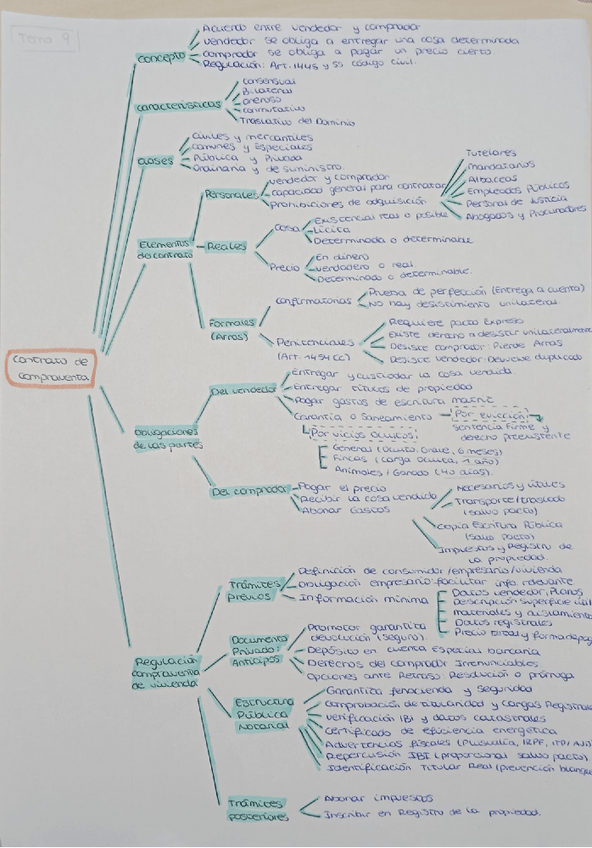 Tema 9
Contrato de
compraventa
Concepto
Acuerdo entre vendedor y comprador
Vendedor se obliga a entregar una cosa determinada
Comprador se obliga a pagar un precio cierto
Regulación: Art. 1445 y ss código civil.
Características
Consensual
Bilateral
Oneroso
Conmutativo
Traslativo del Dominio
Clases
Civiles y mercantiles
Comunes y Especiales
Pública y Privada
Ordinaria y de suministro.
Elementos
del contrato
Personales
Vendedor y comprador
Capacidad general para contratar
Prohibiciones de adquisición
Tutelares
Mandatarios
Albaceas
Empleados Públicos
Personal de Justicia
Abogados y Procuradores
Reales
Cosa
Existencial real o posible
Lícita
Determinada o determinable
Precio
En dinero
Verdadero o real
Determinado o determinable.
Formales
(Arras)
Confirmatorias
Prueba de perfección (Entrega a cuenta)
No hay desistimiento unilateral
Penitenciales
(Art. 1454 CC)
Requiere pacto Expreso
Existe derecho a desistir unilateralmente
Desiste comprador: Pierde Arras
Desiste vendedor: Devuelve duplicado
Obligaciones
de las partes
Del vendedor
Entregar y custodiar la cosa vendida
Entregar títulos de propiedad
Pagar gastos de escritura matriz
Garantía o Saneamiento
Por evicción:
Sentencia firme y
derecho preexistente
Por vicios ocultos:
General (Oculto, Grave, 6 meses)
Fincas (Carga Oculta, 1 año)
Animales / Ganado (40 días).
Del comprador
Pagar el precio
Recibir la cosa vendida
Abonar Gastos
Necesarios y útiles
Transporte/traslado
(Salvo pacto)
Copia Escritura Pública
(Salvo pacto)
Impuestos y Registro de
la propiedad.
Regulación
compraventa
de vivienda
Trámites
previos
Definición de consumidor/empresario/vivienda
Obligación empresario facilitar info. relevante
Información mínima
Datos vendedor, Planos
Descripción superficie útil
materiales y aislamiento
Datos registrales
Precio total y forma de pago
Documento
Privado:
Anticipos
Promotor garantiza
devolución (Seguro).
Depósito en cuenta especial bancaria
Derechos del comprador Irrenunciables
Opciones ante Retraso: Resolución o prórroga
Estructura
Pública
Notarial
Garantiza fehaciencia y seguridad
Comprobación de titularidad y cargas Registrales
Verificación IBI y datos catastrales
Certificado de eficiencia energética
Advertencias fiscales (Plusvalía, IRPF, ITP/AJD)
Repercusión IBI (proporcional salvo pacto)
Identificación Titular Real (prevención
Trámites
posteriores
Abonar impuestos
Inscribir en Registro de la propiedad.